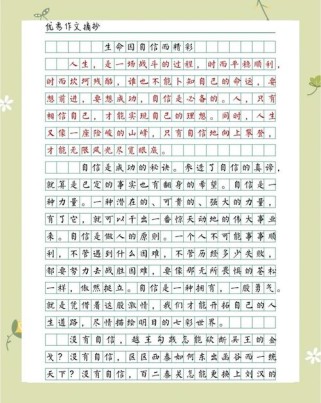 优秀作文摘抄
生命因自信而精彩
人生，是一场战斗的过程，时而平稳顺利，
时而坎坷残酷，谁也不能卜知自己的命运，要
想前进，要想成功，自信是必备的。人，只有
相信自己，才能实现自己的理想。同时，人生
又像一座险峻的山峰，只有自信地向上攀登，
才能无限风光尽览眼底。
自信是成功的秘诀。参透了自信的真谛，
就算是已定的事实也有翻身的希望。自信是一
种力量。一种潜在的、可贵的、强大的力量，
有了它，就可以干出一番惊天动地的伟大事业
来。自信是做人的原则。一个人不可能事事顺
利，不管遇到什么困难，不管历经多少失败，
都要努力去战胜困难，要像那无所畏惧的苍松
一样，傲然挺立。自信是一种拥有，一股勇气。
就是凭借着这股激情，我们才能开拓自己的人
生道路，尽情描绘明日的七彩世界。
没有自信，越王勾践怎能砍断吴王的金
戈？没有自信，区区西秦如何东出函谷而一统
天下？没有自信，百二秦关怎能更换上刘汉的